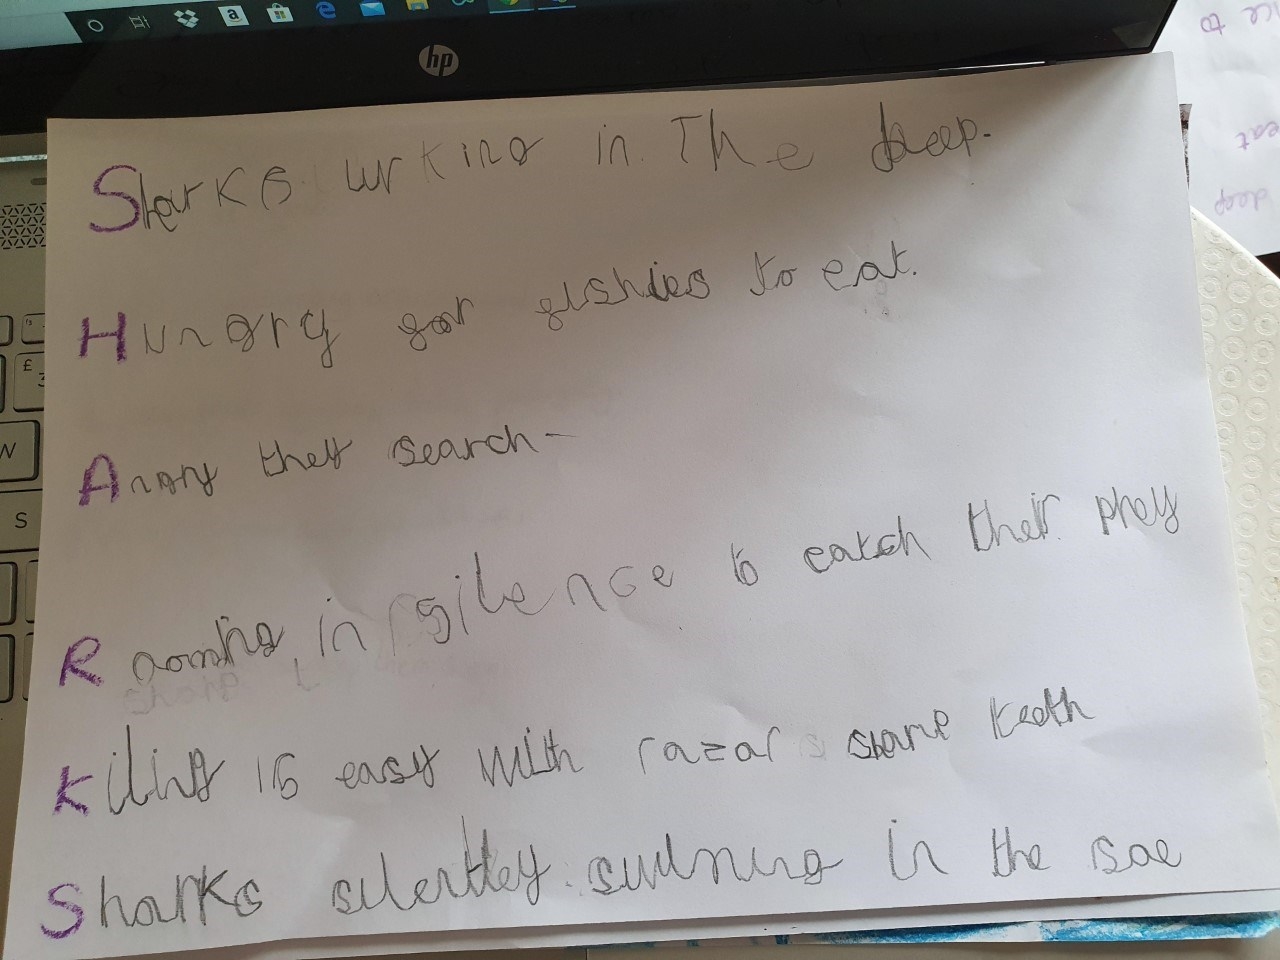 hp
Sharks lurking in The deep.
Hungry for fishies to eat.
Angry they search-
Roaming in silence to catch their prey
Killing is easy with razor sharp teeth
Sharks silentley swimming in the sae
£
3
W
S
ice to
eat
deep